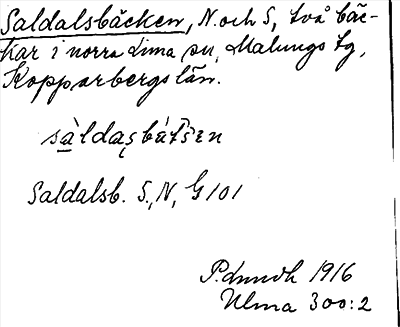 Saldalsbäcken, N. och S, två bäc-
kar i norra Lima sn, Malungs tg,
Kopparbergs län.
sàldaṣbät̂s̆en
Saldalsb. S., N, G 101
P.dmwdk 1916
Ulma 300:2